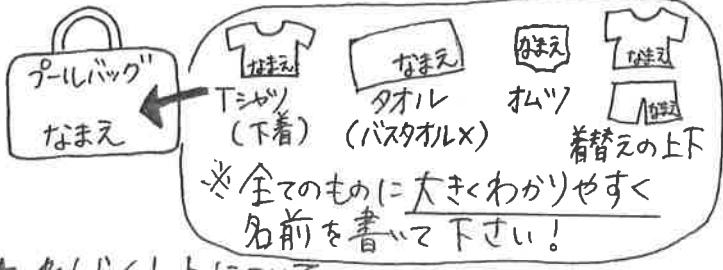 プールバッグ
なまえ
なまえ
Tシャツ
(下着)
なまえ
タオル
(バスタオル×)
なまえ
オムツ
なまえ
なまえ
着替えの上下
※全てのものに大きくわかりやすく
名前を書いて下さい!
について